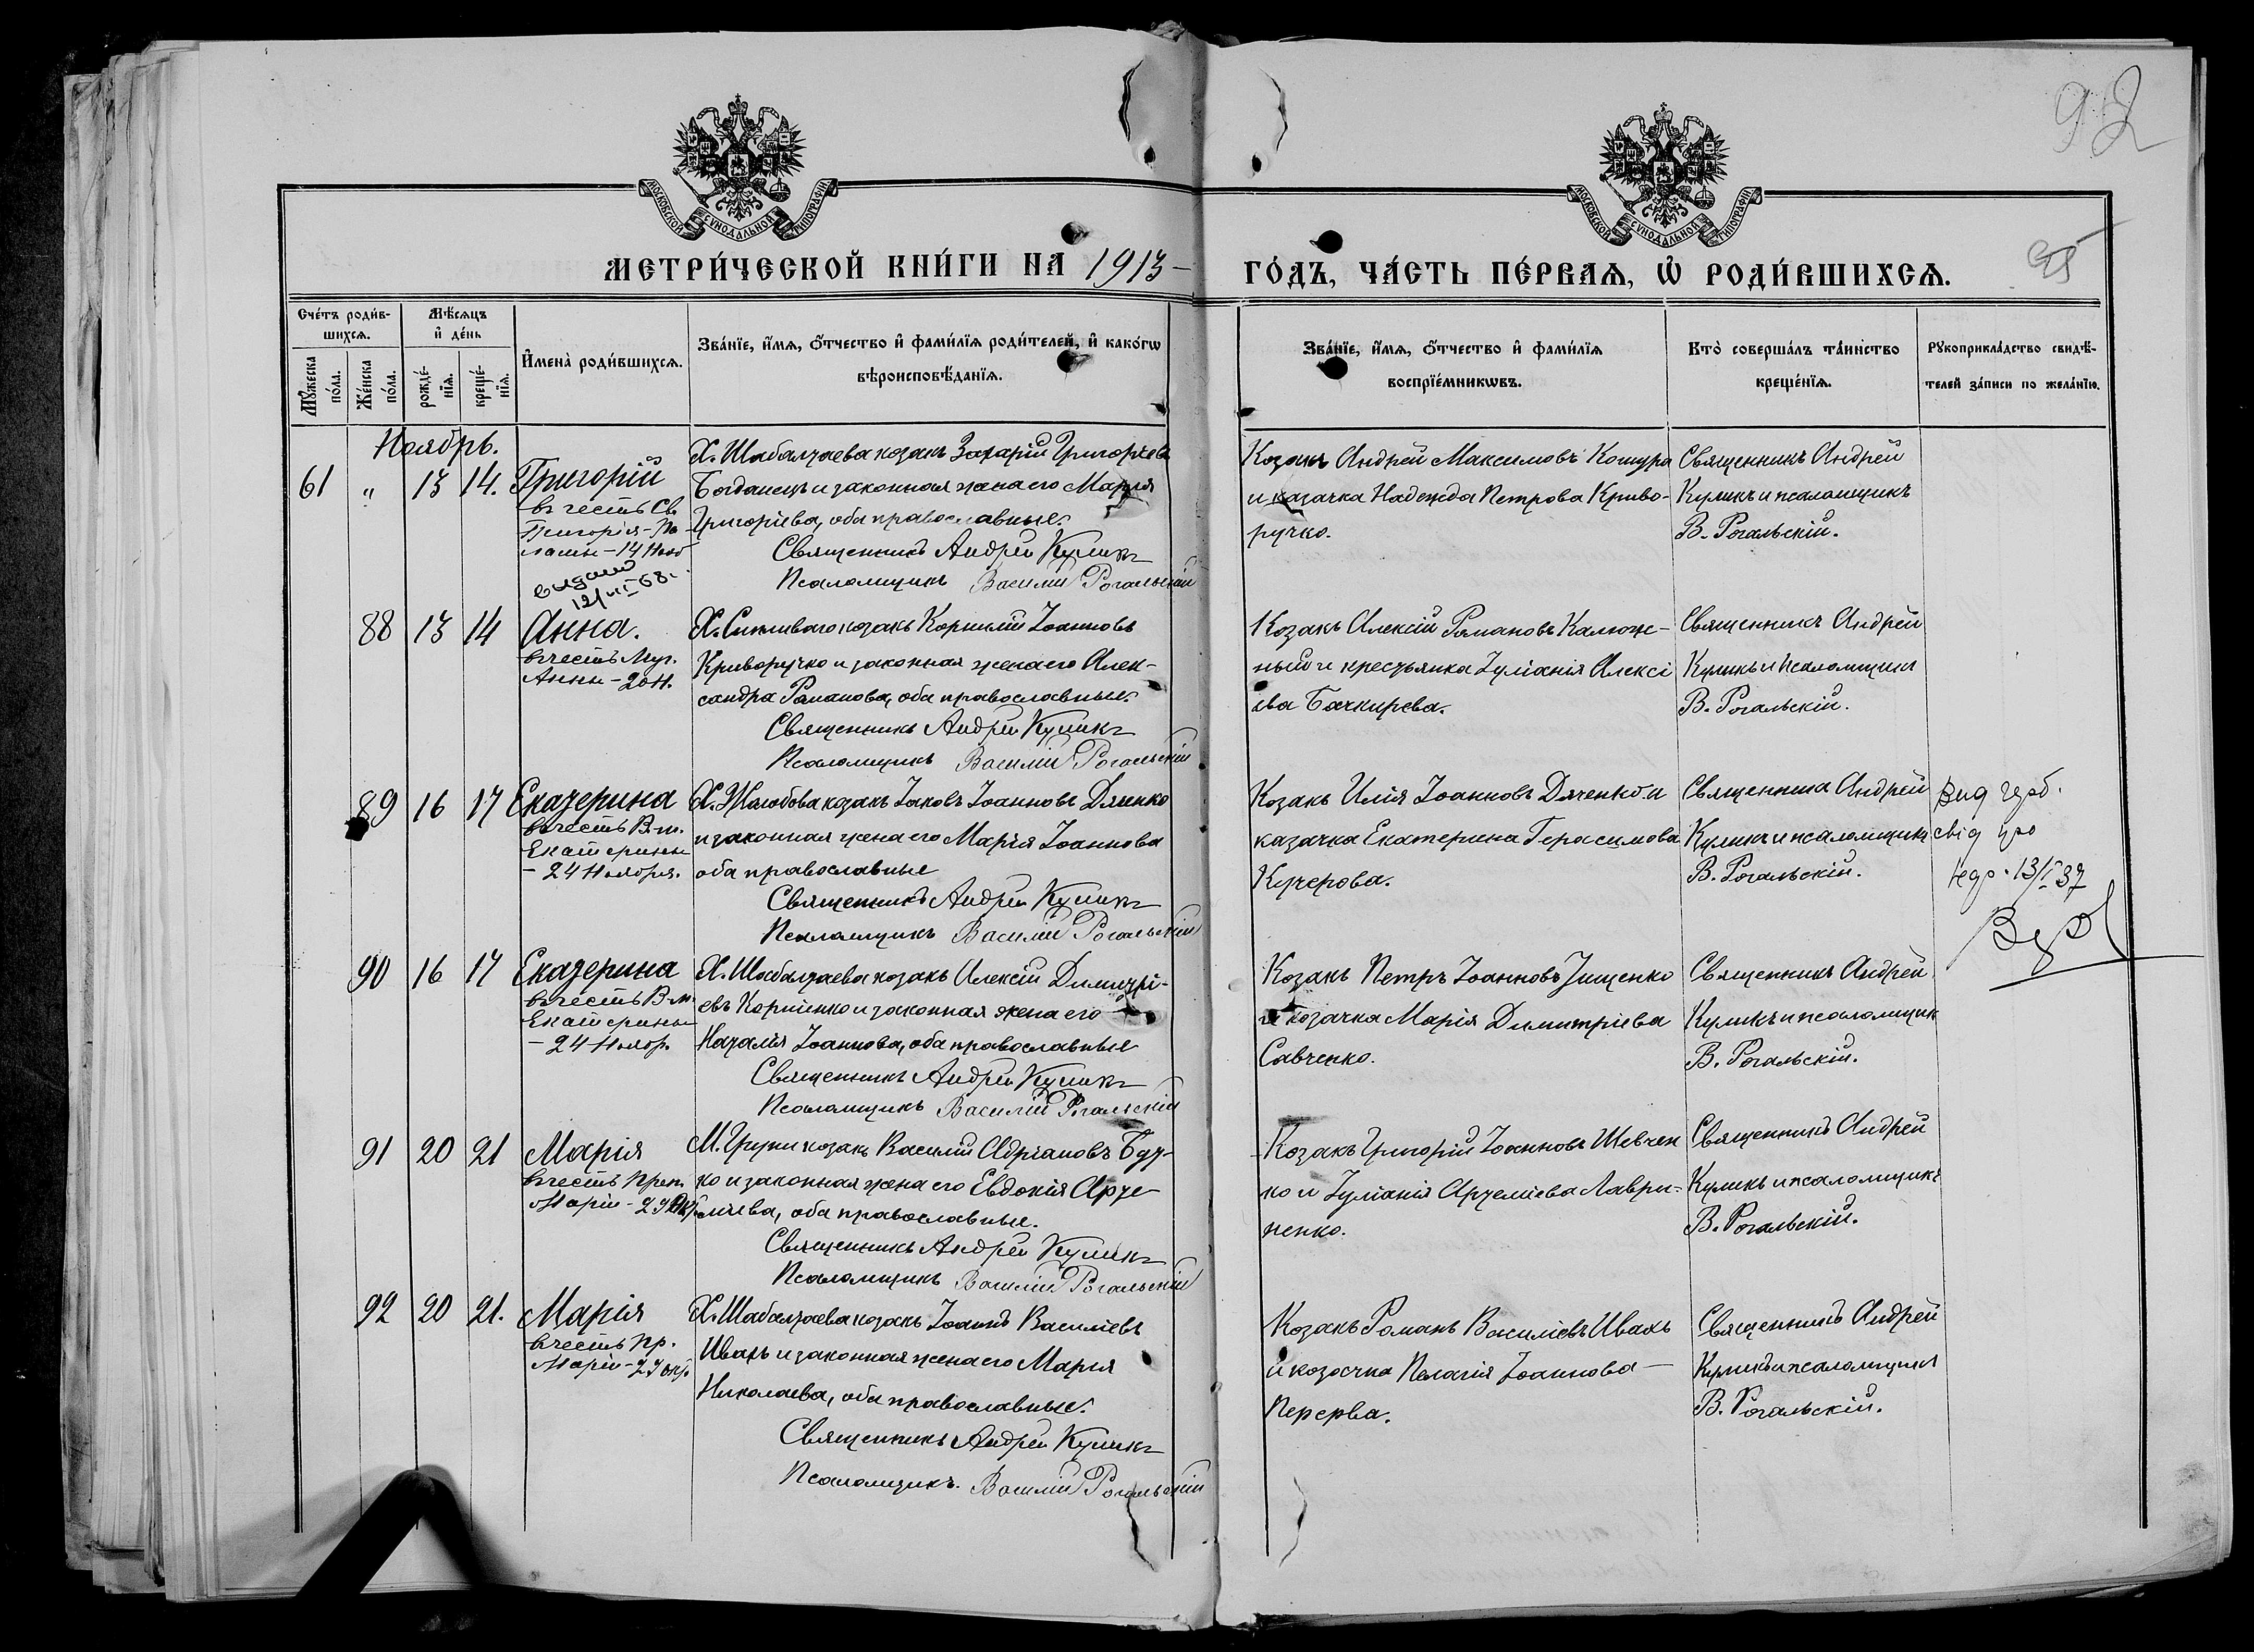 92
95
МОСКОВСКОЙ СѴНОДАЛЬНОЙ ТИПОГРАФІИ
МОСКОВСКОЙ СѴНОДАЛЬНОЙ ТИПОГРАФІИ
МЕТРИ́ЧЕСКОЙ КНИ́ГИ НА 1913 — ГО́ДЪ, ЧА́СТЬ ПЕ́РВАѦ, Ѡ҆ РОДИ́ВШИХСѦ.
Сче́тъ роди́в-
шихсѧ.
Мѣ́сѧцъ
и҆ де́нь
Мꙋ́жеска по́ла.
Же́нска по́ла.
рожде́-
нїѧ.
креще́-
нїѧ.
И҆мена̀ роди́вшихсѧ.
Зва́нїе, и҆́мѧ, ѻ҆́тчество и҆ фами́лїѧ роди́телей, и҆ како́гѡ
вѣроисповѣ́данїѧ.
Зва́нїе, и҆́мѧ, ѻ҆́тчество и҆ фами́лїѧ
воспрїе́мникѡвъ.
Кто̀ соверша́лъ та́инство
креще́нїѧ.
Рꙋкоприкла́дство свидѣ́-
телей за́писи по жела́нїю.
Ноябрь.
61 " 13 14. Григорій
въ честь Св
Григорія - Па-
ламы - 14 Нояб
видано
12/VII 68 г.
Х. Шабалтаева козакъ Захарій Григоріевъ
Богданецъ и законная жена его Марія
Григоріева, оба православные.
Священникъ Андрей Куликъ
Псаломщикъ Василій Рогальскій
Козакъ Андрей Максимовъ Кошура
и казачка Надежда Петрова Криво-
ручко.
Священникъ Андрей
Куликъ и псаломщикъ
В. Рогальскій.
88 13 14 Анна.
въ честь Муч.
Анны - 20 Н.
Х. Сипливаго козакъ Корнилій Іоанновъ
Криворучко и законная жена его Алек-
сандра Романова, оба православные.
Священникъ Андрей Куликъ
Псаломщикъ Василій Рогальскій
Козакъ Алексій Романовъ Калюж-
ный и крестьянка Іуліанія Алексі
ева Бачкирева.
Священникъ Андрей
Куликъ и псаломщикъ
В. Рогальскій.
89 16 17 Екатерина
въ честь В-м.
Екатерины
- 24 Ноября.
Х. Жолобова козакъ Іаковъ Іоанновъ Дяченко
и законная жена его Марія Іоаннова
оба православные
Священникъ Андрей Куликъ
Псаломщикъ Василій Рогальскій
Козакъ Илія Іоанновъ Дяченко и
казачка Екатерина Герасимова
Кучерова.
Священника Андрей
Куликъ и псаломщикъ
В. Рогальскій.
Вид
свід про
13/I 37
90 16 17 Екатерина
въ честь В-м.
Екатерины
- 24 Ноябр.
Х. Шабалтаева козакъ Алексій Димитрі-
евъ Корніенко и законная жена его
Наталія Іоаннова, оба православные
Священникъ Андрей Куликъ
Псаломщикъ Василій Рогальскій
Козакъ Петръ Іоанновъ Ищенко
и козачка Марія Димитріева
Савченко.
Священникъ Андрей
Куликъ и псаломщик
В. Рогальскій.
91 20 21 Марія
въ честь Преп.
Маріи - 29 Окт.
М. Груни козакъ Василій Адріановъ Буд-
ко и законная жена его Евдокія Арте
міева, оба православные.
Священникъ Андрей Куликъ
Псаломщикъ Василій Рогальскій
Козакъ Григорій Іоанновъ Шевчен
ко и Іуліанія Артеміева Лаври-
ненко.
Священникъ Андрей
Куликъ и псаломщикъ
В. Рогальскій.
92 20 21. Марія
въ честь Пр.
Маріи - 29 окт.
Х. Шабалтаева козакъ Іоаннъ Василіевъ
Ивахъ и законная жена его Марія
Николаева, оба православные.
Священникъ Андрей Куликъ
Псаломщикъ. Василій Рогальскій
Козакъ Романъ Василіевъ Ивахъ
и козачка Пелагія Іоаннова —
Перерва.
Священникъ Андрей
Куликъ и псаломщикъ
В. Рогальскій.